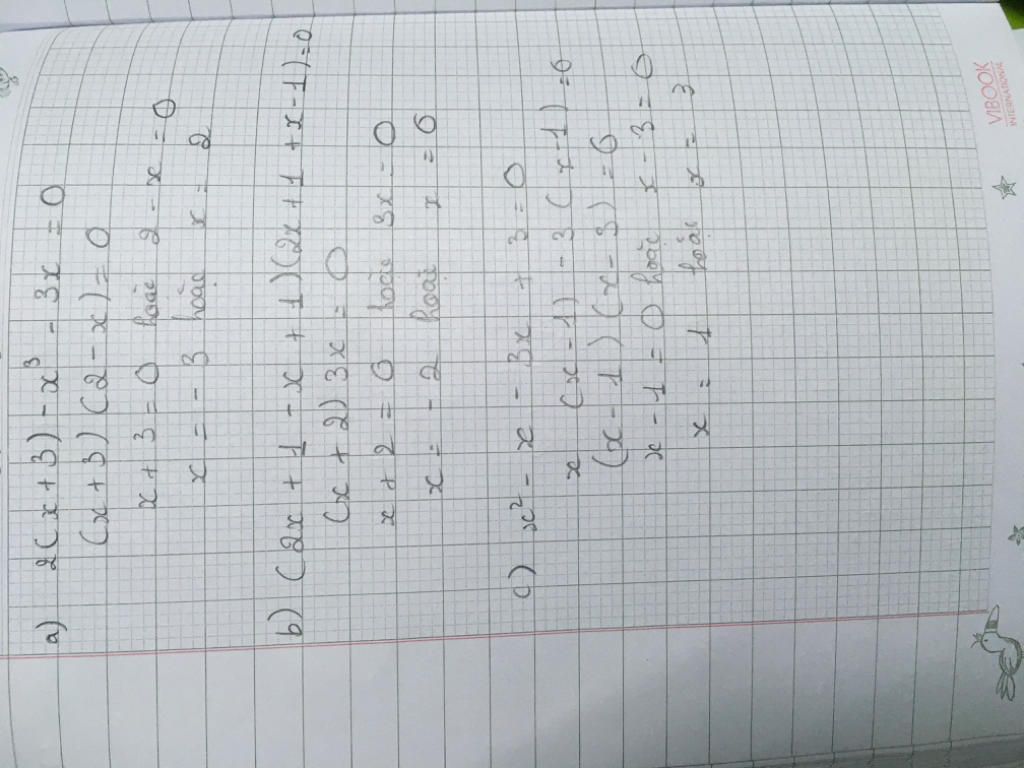 a) 2(x+3) - x³ - 3x = 0
(x+3)(2-x) = 0
x+3=0 hoặc 2-x=0
x=-3 hoặc x=2
b) (2x+1-x+1)(2x+1+x-1)=0
(x+2)3x=0
x+2=0 hoặc 3x=0
x=-2 hoặc x=0
c) x²-x-3x+3=0
x(x-1)-3(x-1)=0
(x-1)(x-3)=0
x-1=0 hoặc x-3=0
x=1 hoặc x=3
VIBOOK
INTERNATIONAL